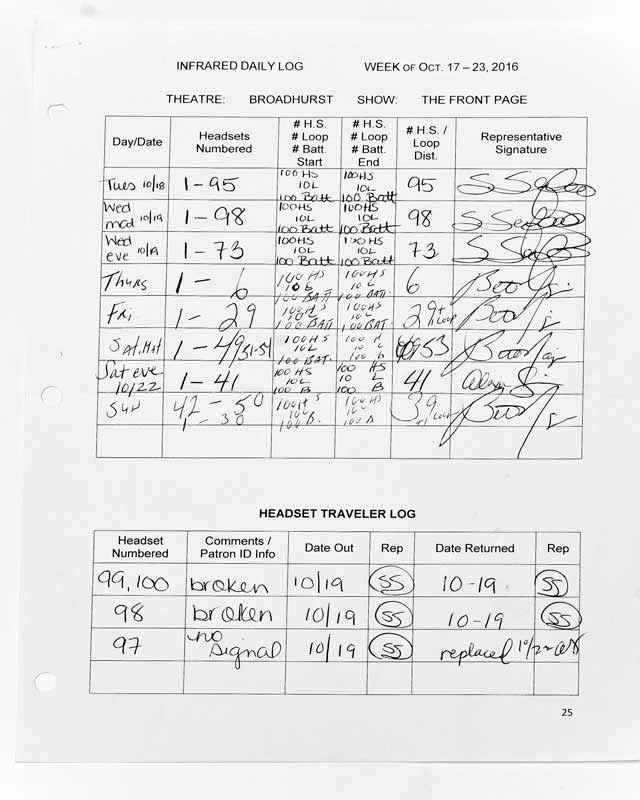 INFRARED DAILY LOG WEEK OF OCT. 17 – 23, 2016
THEATRE: BROADHURST SHOW: THE FRONT PAGE
Day/Date Headsets Numbered # H.S. # Loop # Batt. Start # H.S. # Loop # Batt. End # H.S. / Loop Dist. Representative Signature
Tues 10/18 1 – 95 100 HS 10L 100 Batt 100HS 10L 100 Batt 95
Wed mad 10/19 1 – 98 100HS 10L 100 Batt 100HS 10L 100 Batt 98
Wed eve 10/19 1 – 73 100HS 10L 100 Batt 100HS 10L 100 Batt 73
Thurs 1 – 6 100 HS 10 L 100 BATT 100HS 10 L 100 BATT 6
Fri 1 – 29 100HS 10L 100 BATT 100HS 10L 100BAT 29 + 1 Loop
Sat. Mat 1 – 49 51-54 100HS 10L 100 BAT 100 10 100 53
Sat eve 10/22 1 – 41 100 HS 10L 100 B 100 HS 10 L 100 B 41
Sun 42 – 50 1 – 30 100HS 100 B. 100HS 100 B 39 +1 Loop
HEADSET TRAVELER LOG
Headset Numbered Comments / Patron ID Info Date Out Rep Date Returned Rep
99,100 broken 10/19 SS 10-19 SS
98 broken 10/19 SS 10-19 SS
97 no signal 10/19 SS replaced 10/22
25